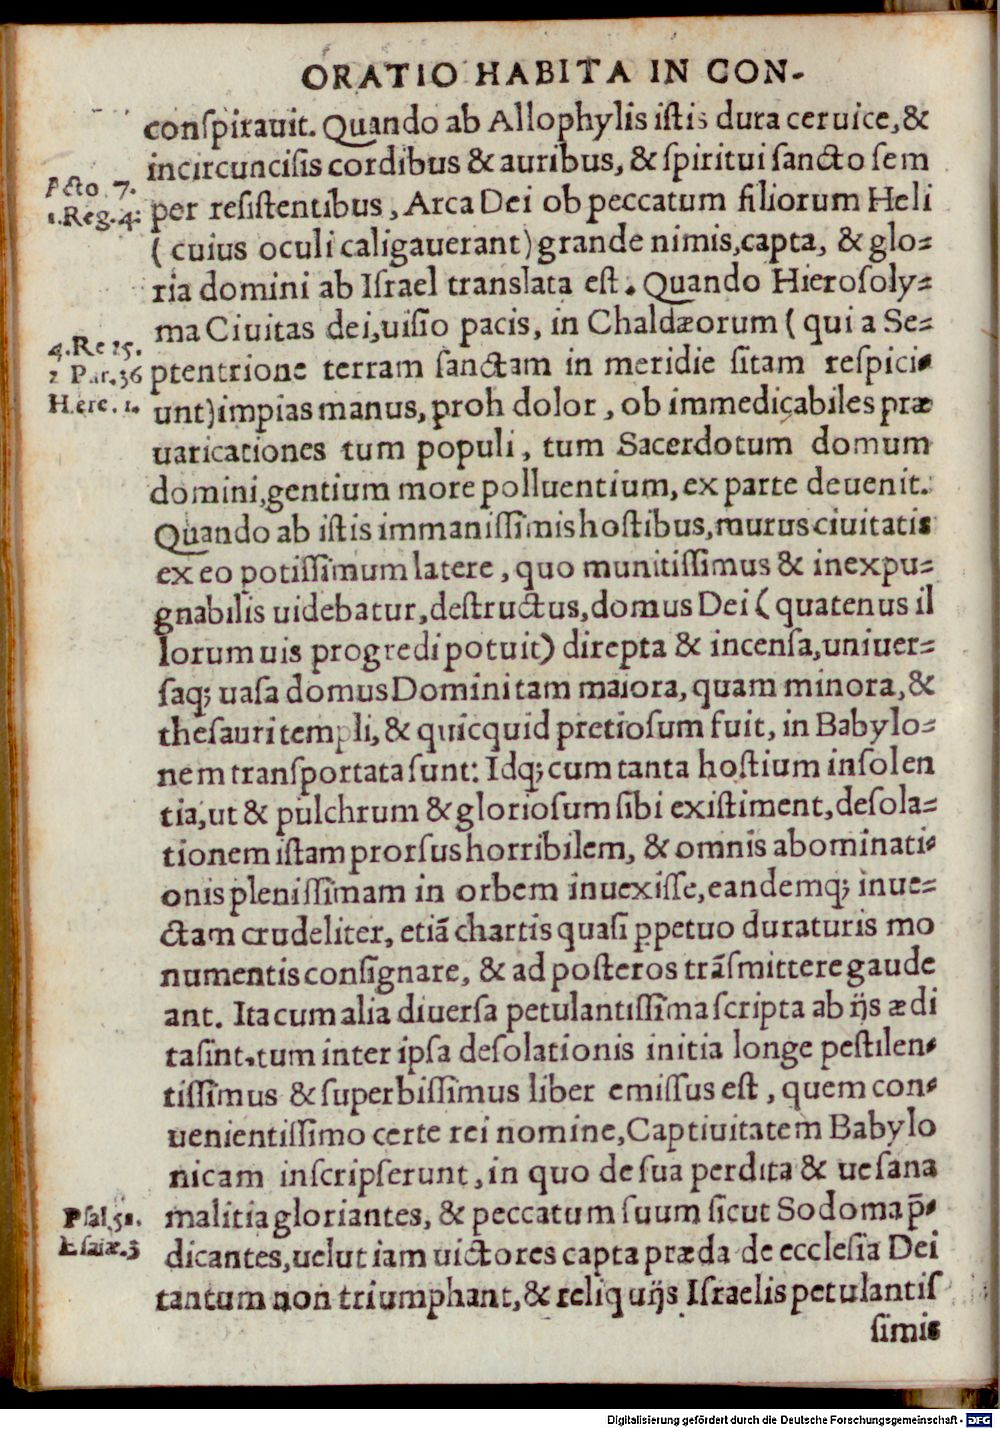 ORATIO HABITA IN CON-
conſpirauit. Quando ab Allophylis iſtis dura ceruice, &
incircuncisis cordibus & auribus, & ſpiritui ſancto ſem
Acto 7.
per reſiſtentibus, Arca Dei ob peccatum filiorum Heli
1.Reg.4.
( cuius oculi caligauerant) grande nimis, capta, & glo-
ria domini ab Iſrael translata eſt. Quando Hieroſoly-
ma Ciuitas dei, uiſio pacis, in Chaldæorum ( qui a Se-
4.Re 25.
ptentrione terram ſanctam in meridie ſitam reſpici-
2 Par.36
unt) impias manus, proh dolor, ob immedicabiles præ
Here. 1.
uaricationes tum populi, tum Sacerdotum domum
domini, gentium more polluentium, ex parte deuenit.
Quando ab iſtis immaniſſimis hoſtibus, murus ciuitatis
ex eo potiſſimum latere, quo munitiſſimus & inexpu-
gnabilis uidebatur, deſtructus, domus Dei ( quatenus il
lorum uis progredi potuit) direpta & incenſa, uniuer-
ſaq; uaſa domus Domini tam maiora, quam minora, &
theſauri templi, & quicquid pretioſum fuit, in Babylo-
nem transportata ſunt: Idq; cum tanta hoſtium inſolen
tia, ut & pulchrum & glorioſum ſibi exiſtiment, deſola-
tionem iſtam prorſus horribilem, & omnis abominati-
onis pleniſſimam in orbem inuexiſſe, eandemq; inue-
ctam crudeliter, etiã chartis quaſi ꝑpetuo duraturis mo
numentis conſignare, & ad poſteros trãſmittere gaude
ant. Ita cum alia diuerſa petulantiſſima ſcripta ab ijs ædi
ta ſint, tum inter ipſa deſolationis initia longe peſtilen-
tiſſimus & ſuperbiſſimus liber emiſſus eſt, quem con-
uenientiſſimo certe rei nomine, Captiuitatem Babylo
nicam inſcripſerunt, in quo de ſua perdita & ueſana
Pſal.51.
malitia gloriantes, & peccatum ſuum ſicut Sodoma p̃-
Eſaiæ.3
dicantes, uelut iam uictores capta præda de eccleſia Dei
tantum non triumphant, & reliquijs Iſraelis petulantiſ
ſimis
Digitalisierung gefördert durch die Deutsche Forschungsgemeinschaft - DFG